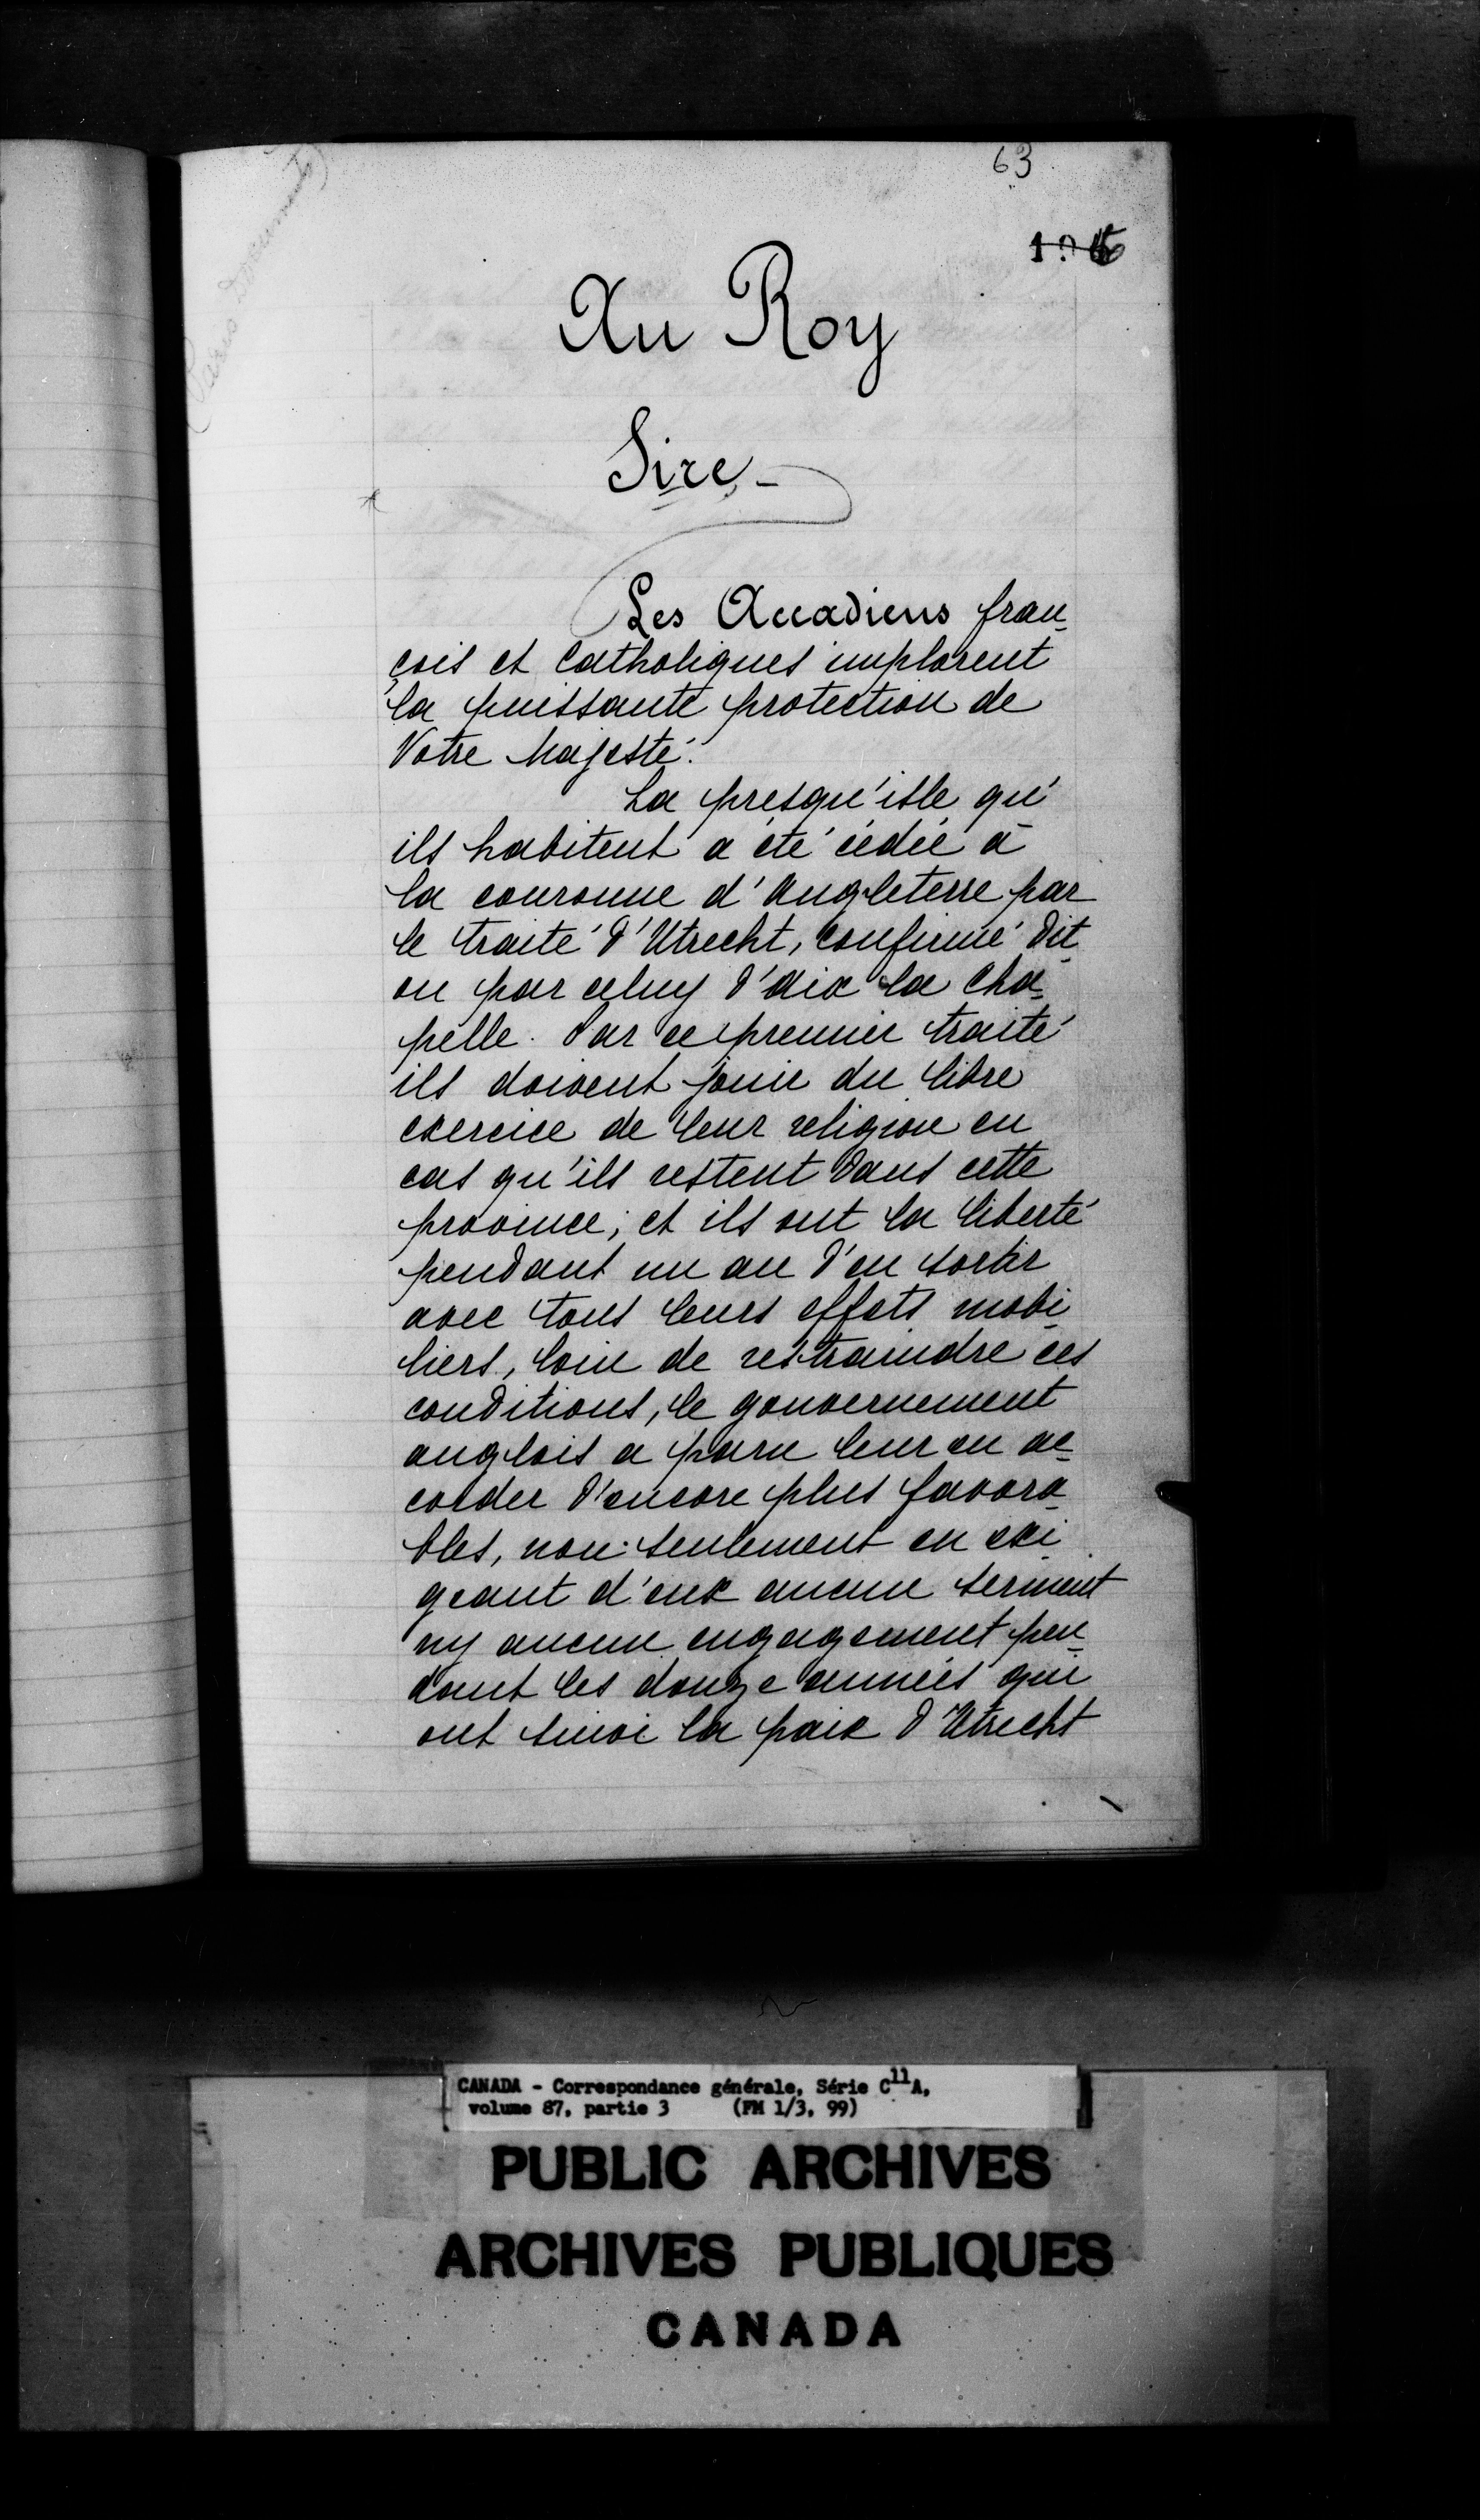 63
Au Roy
Sire,
Les Accadiens fran-
çois et Catholiques implorent
la puissante protection de
Votre Majesté.
La presqu'isle qu'
ils habitent a été cédée à
la couronne d'Angleterre par
le traité d'Utrecht, confirmé dit
on par celuy d'aix la Cha-
pelle. Par ce premier traité
ils doivent jouir du libre
exercice de leur religion en
cas qu'ils restent dans cette
province; et ils ont la liberté
pendant un an d'en sortir
avec tous leurs effets mobi-
liers, loin de restraindre ces
conditions, le gouvernement
anglois a paru leur en ac-
corder d'encore plus favora-
bles, non-seulement en exi-
geant d'eux aucun serment
ny aucun engagement pen-
dant les douze années qui
ont suivi la paix d'Utrecht
CANADA - Correspondance générale, Série C11A,
volume 87, partie 3 (FM 1/3, 99)
PUBLIC ARCHIVES
ARCHIVES PUBLIQUES
CANADA